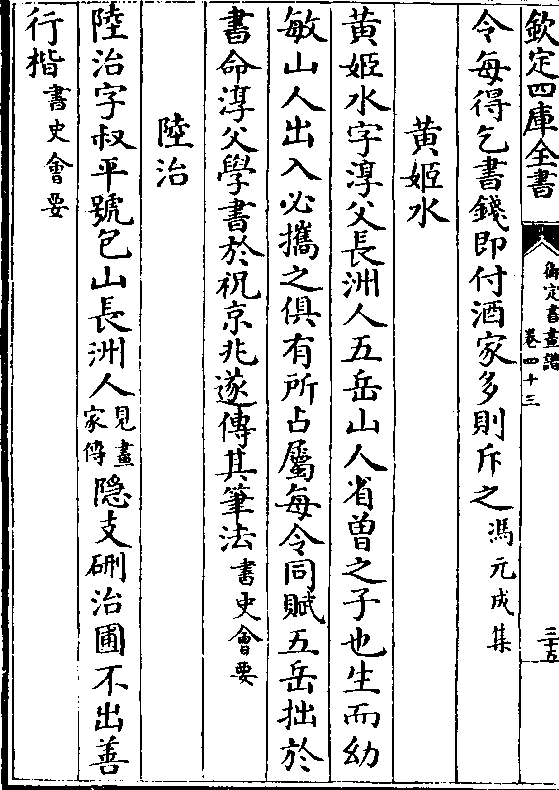 欽定四庫全書
御定書畫譜
卷四十三
三五
令每得乞書錢即付酒家多則斥之馮元成集
黃姬水
黃姬水字淳父長洲人五岳山人省曾之子也生而幼
敏山人出入必攜之俱有所占屬每令同賦五岳拙於
書命淳父學書於祝京兆遂傳其筆法書史會要
陸治
陸治字叔平號包山長洲人見畫家傳隱支硎治圃不出善
行楷書史會要